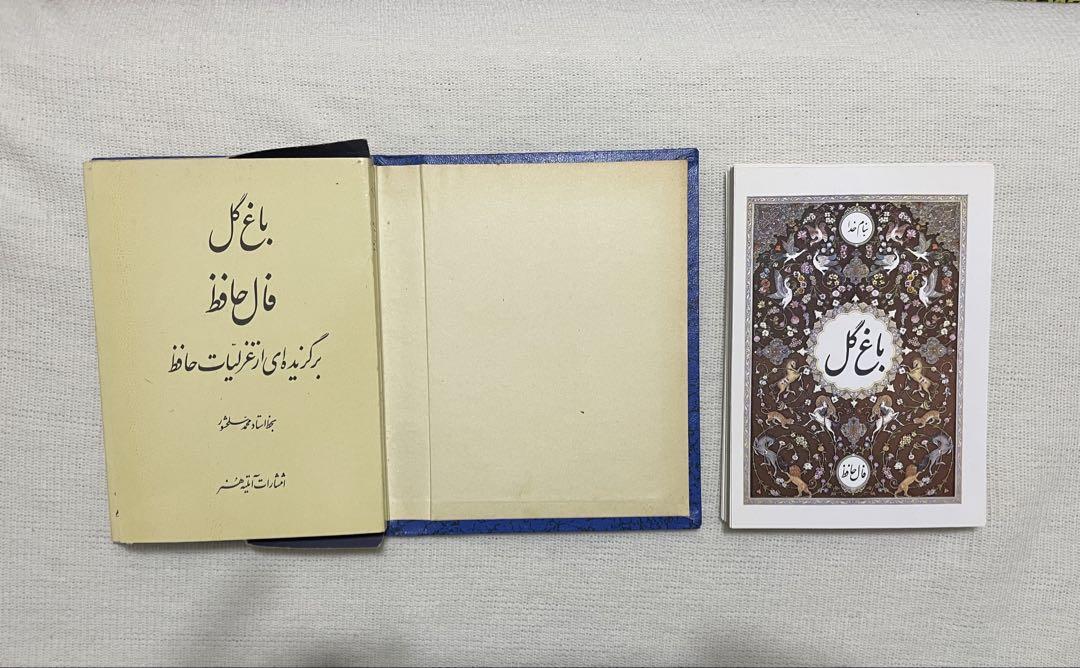 باغ گل
فال حافظ
برگزیده‌ای از غزلیّات حافظ
بخط استاد محمد سلحشور
انتشارات آتلیه هنر
بنام خدا
باغ گل
فال حافظ